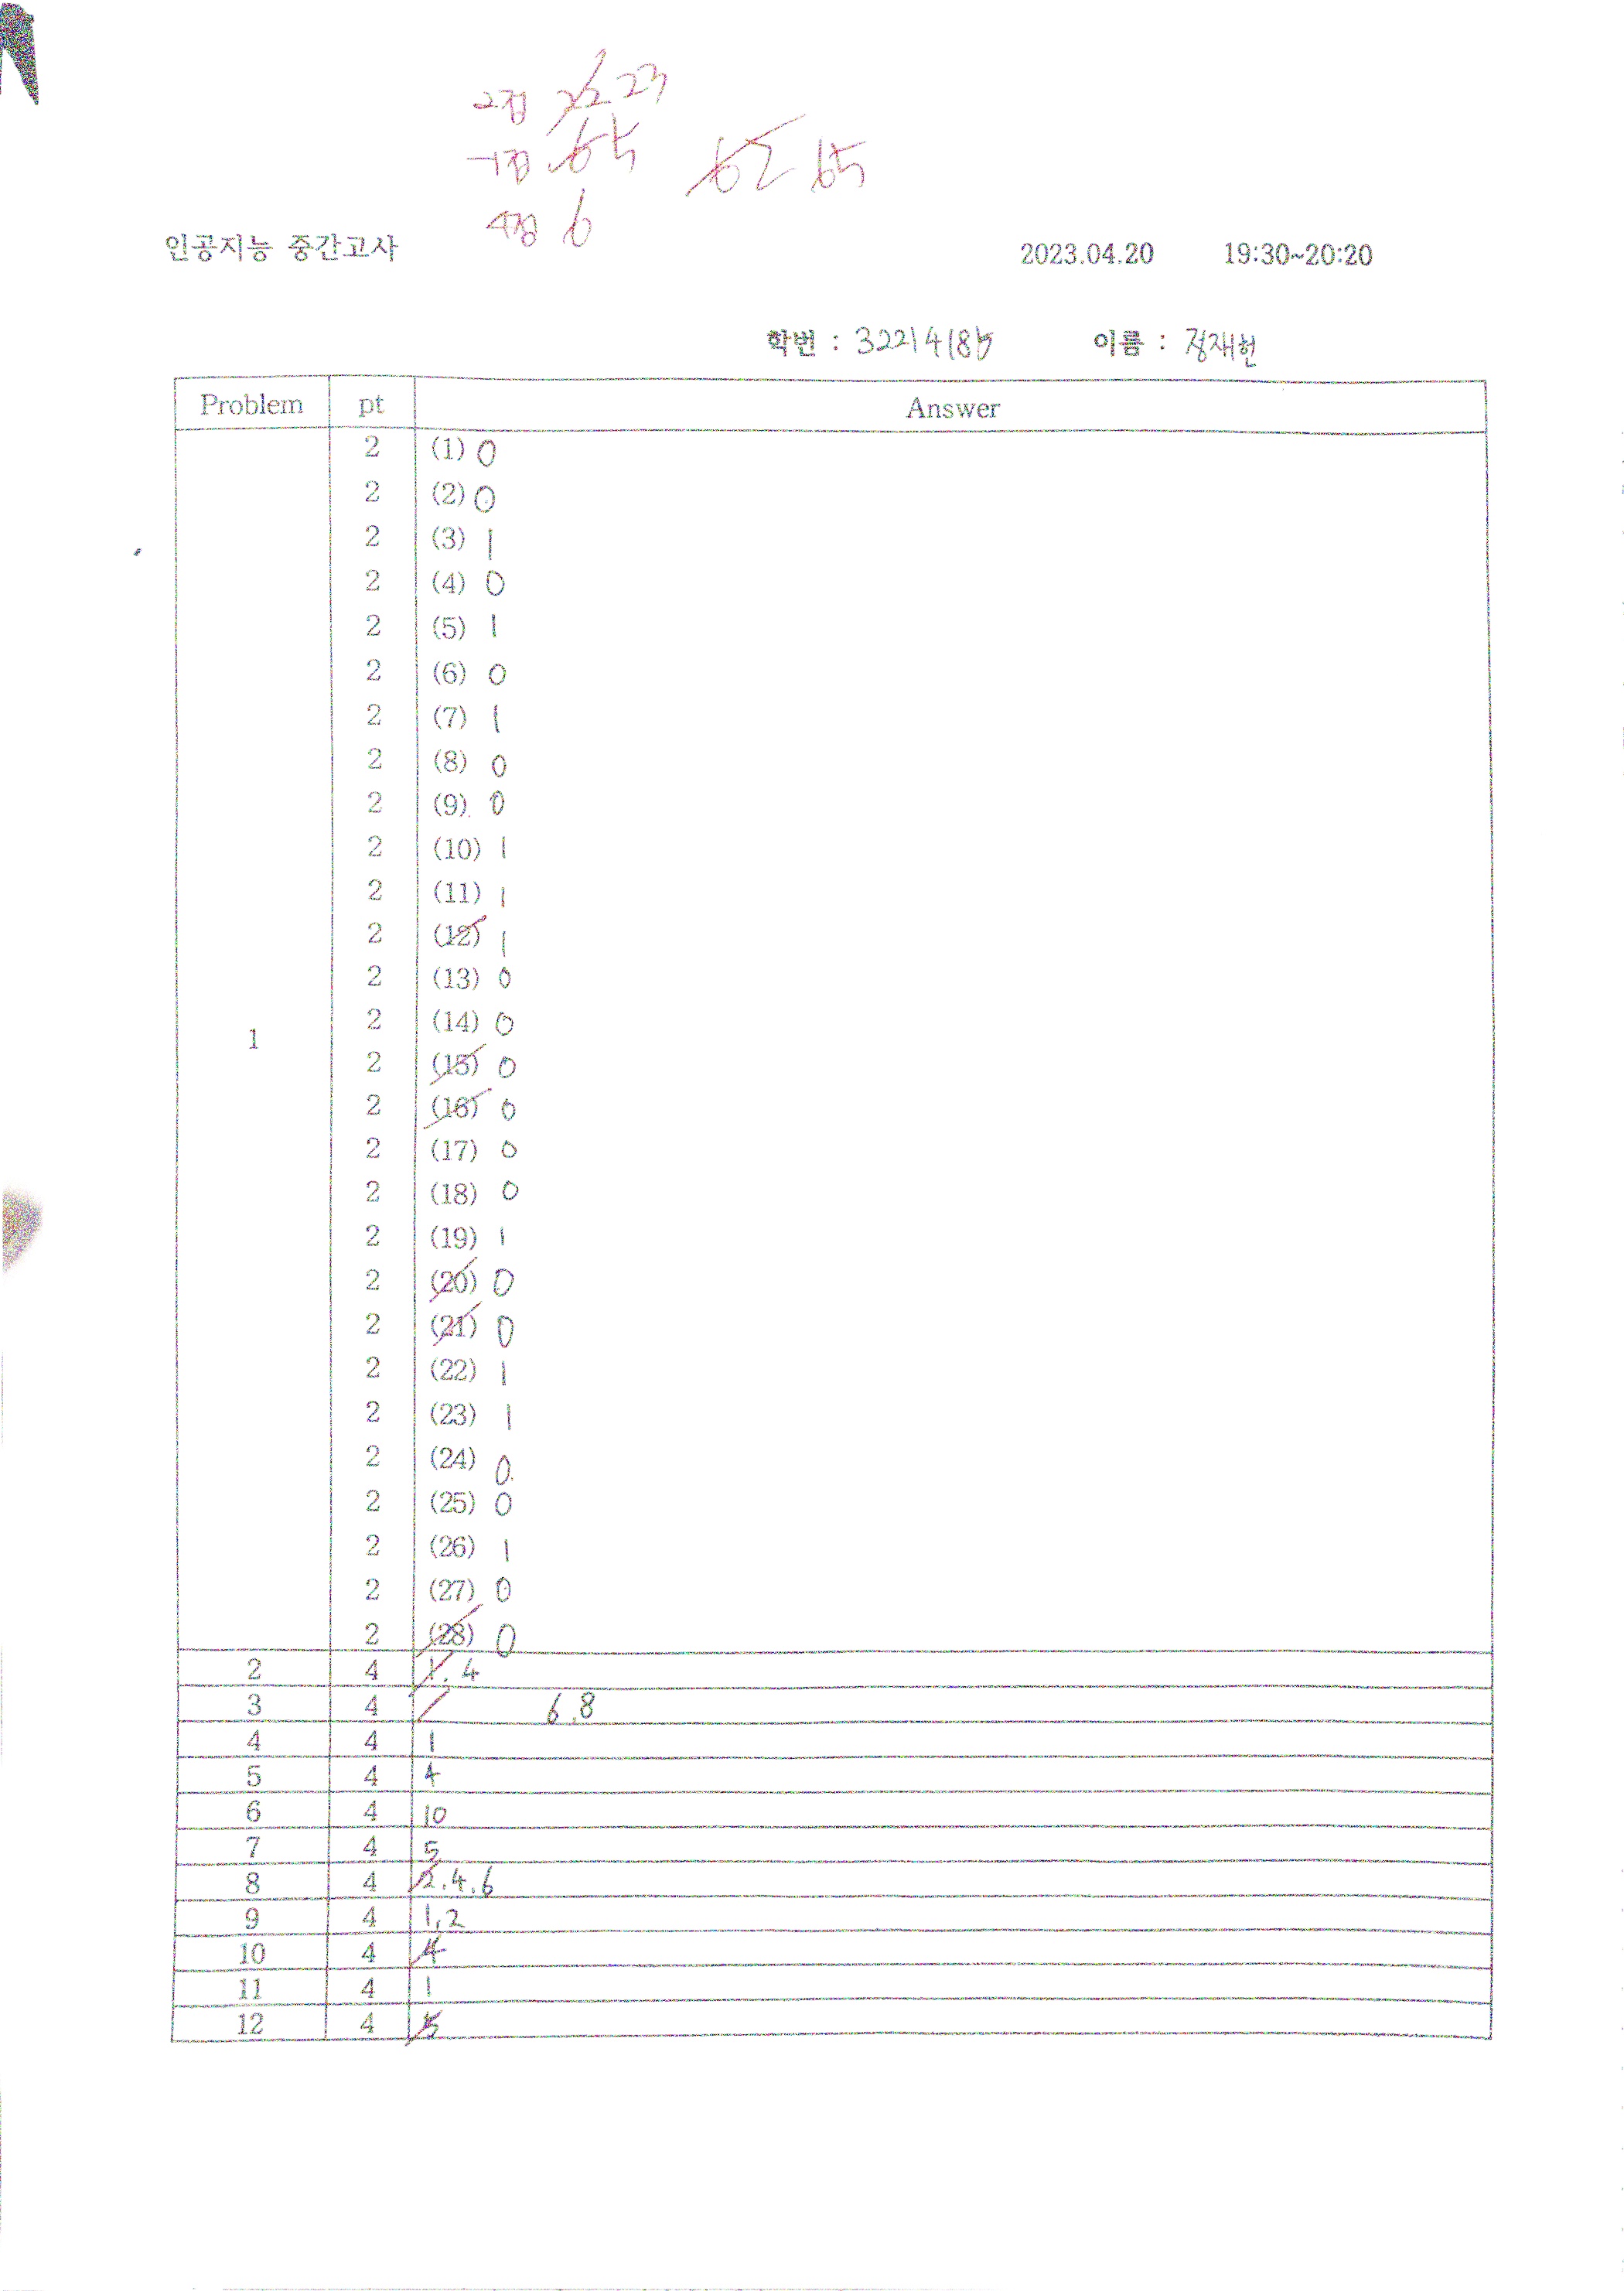 2점 22 23
-1점 6 5
4점 6
62 65
인공지능 중간고사 2023.04.20 19:30~20:20
학번 : 32214185 이름 : 정재헌
Problem pt Answer
1
2 (1) 0
2 (2) 0
2 (3) 1
2 (4) 0
2 (5) 1
2 (6) 0
2 (7) 1
2 (8) 0
2 (9) 0
2 (10) 1
2 (11) 1
2 (12) 1
2 (13) 0
2 (14) 0
2 (15) 0
2 (16) 0
2 (17) 0
2 (18) 0
2 (19) 1
2 (20) 0
2 (21) 0
2 (22) 1
2 (23) 1
2 (24) 0
2 (25) 0
2 (26) 1
2 (27) 0
2 (28) 0
2 4 1, 4
3 4 6,8
4 4 1
5 4 4
6 4 10
7 4 5
8 4 2.4.6
9 4 1,2
10 4 4
11 4 1
12 4 5